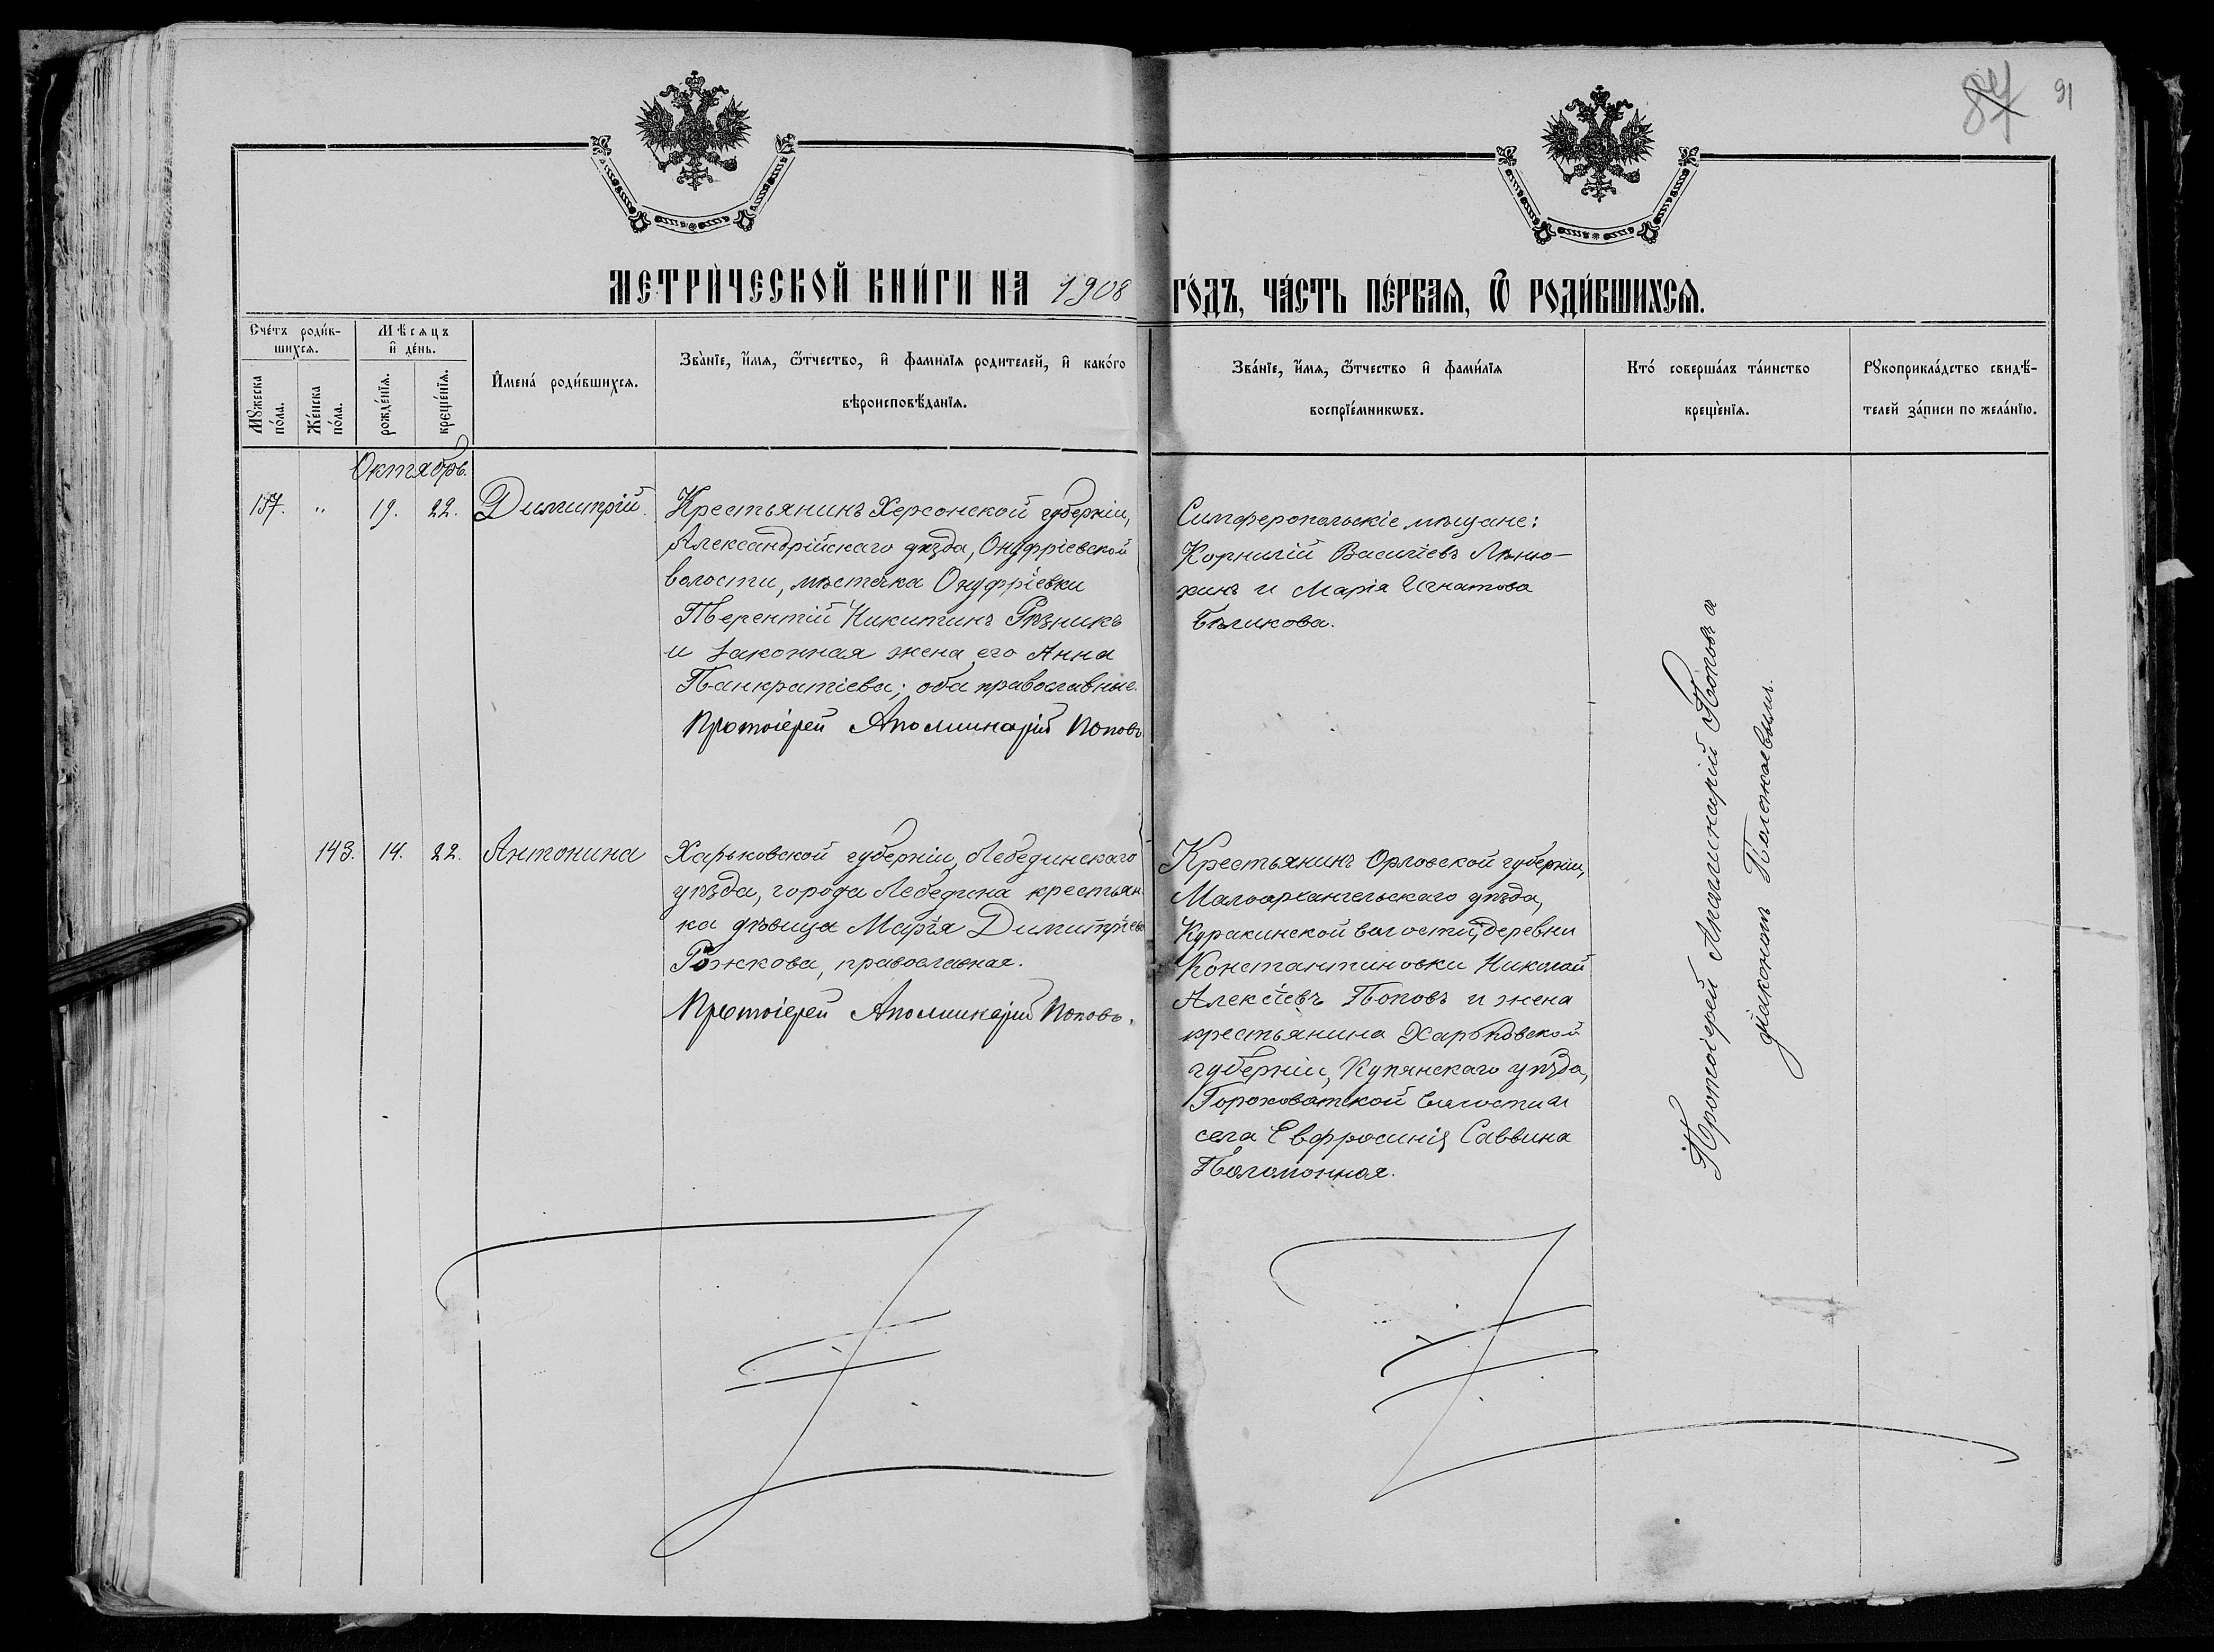 87 91
МЕТРИ́ЧЕСКОЙ КНИ́ГИ НА 1908 ГО́ДЪ, ЧА́СТЬ ПЕ́РВАѦ, Ѡ҃ РОДИ́ВШИХСѦ.
Сче́тъ роди́в-
шихсѧ.
Мѣсѧцъ
и де́нь.
Мꙋжеска
по́ла.
Же́нска
по́ла.
рожде́нїѧ.
креще́нїѧ.
Имена́ роди́вшихсѧ.
Зва́нїе, и́мѧ, ѻ́тчество, и фамилїѧ родителей, и како́го
вѣроисповѣ́данїѧ.
Зва́нїе, и́мѧ, ѻ́тчество и фами́лїѧ
воспрїе́мникѡвъ.
Кто́ соверша́лъ та́инство
креще́нїѧ.
Рꙋкоприкла́дство свидѣ́-
телей за́писи по жела́нїю.
Октябрь.
157. " 19. 22. Димитрій.
Крестьянинъ Херсонской губерніи,
Александрійскаго уѣзда, Онуфріевской
волости, мѣстечка Онуфріевки
Терентій Никитинъ Рѣзникъ
и законная жена его Анна
Панкратіева; оба православные.
Протоіерей Аполлинарій Поповъ
Симферопольскіе мѣщане:
Корнилій Василіевъ Лѣню-
хинъ и Марія Игнатова
Бѣликова.
143. 14. 22. Антонина
Харьковской губерніи, Лебединскаго
уѣзда, города Лебедина крестьян-
ка дѣвица Марія Димитріева
Рожкова, православная.
Протоіерей Аполлинарій Поповъ.
Крестьянинъ Орловской губерніи,
Малоархангельскаго уѣзда,
Куракинской волости, деревни
Константиновки Николай
Алексѣевъ Поповъ и жена
крестьянина Харьковской
губерніи, Купянскаго уѣзда,
Гороховатской волости и
села Евфросинія Саввина
Поломонная.
Протоіерей Аполлинарій Поповъ а
діакономъ